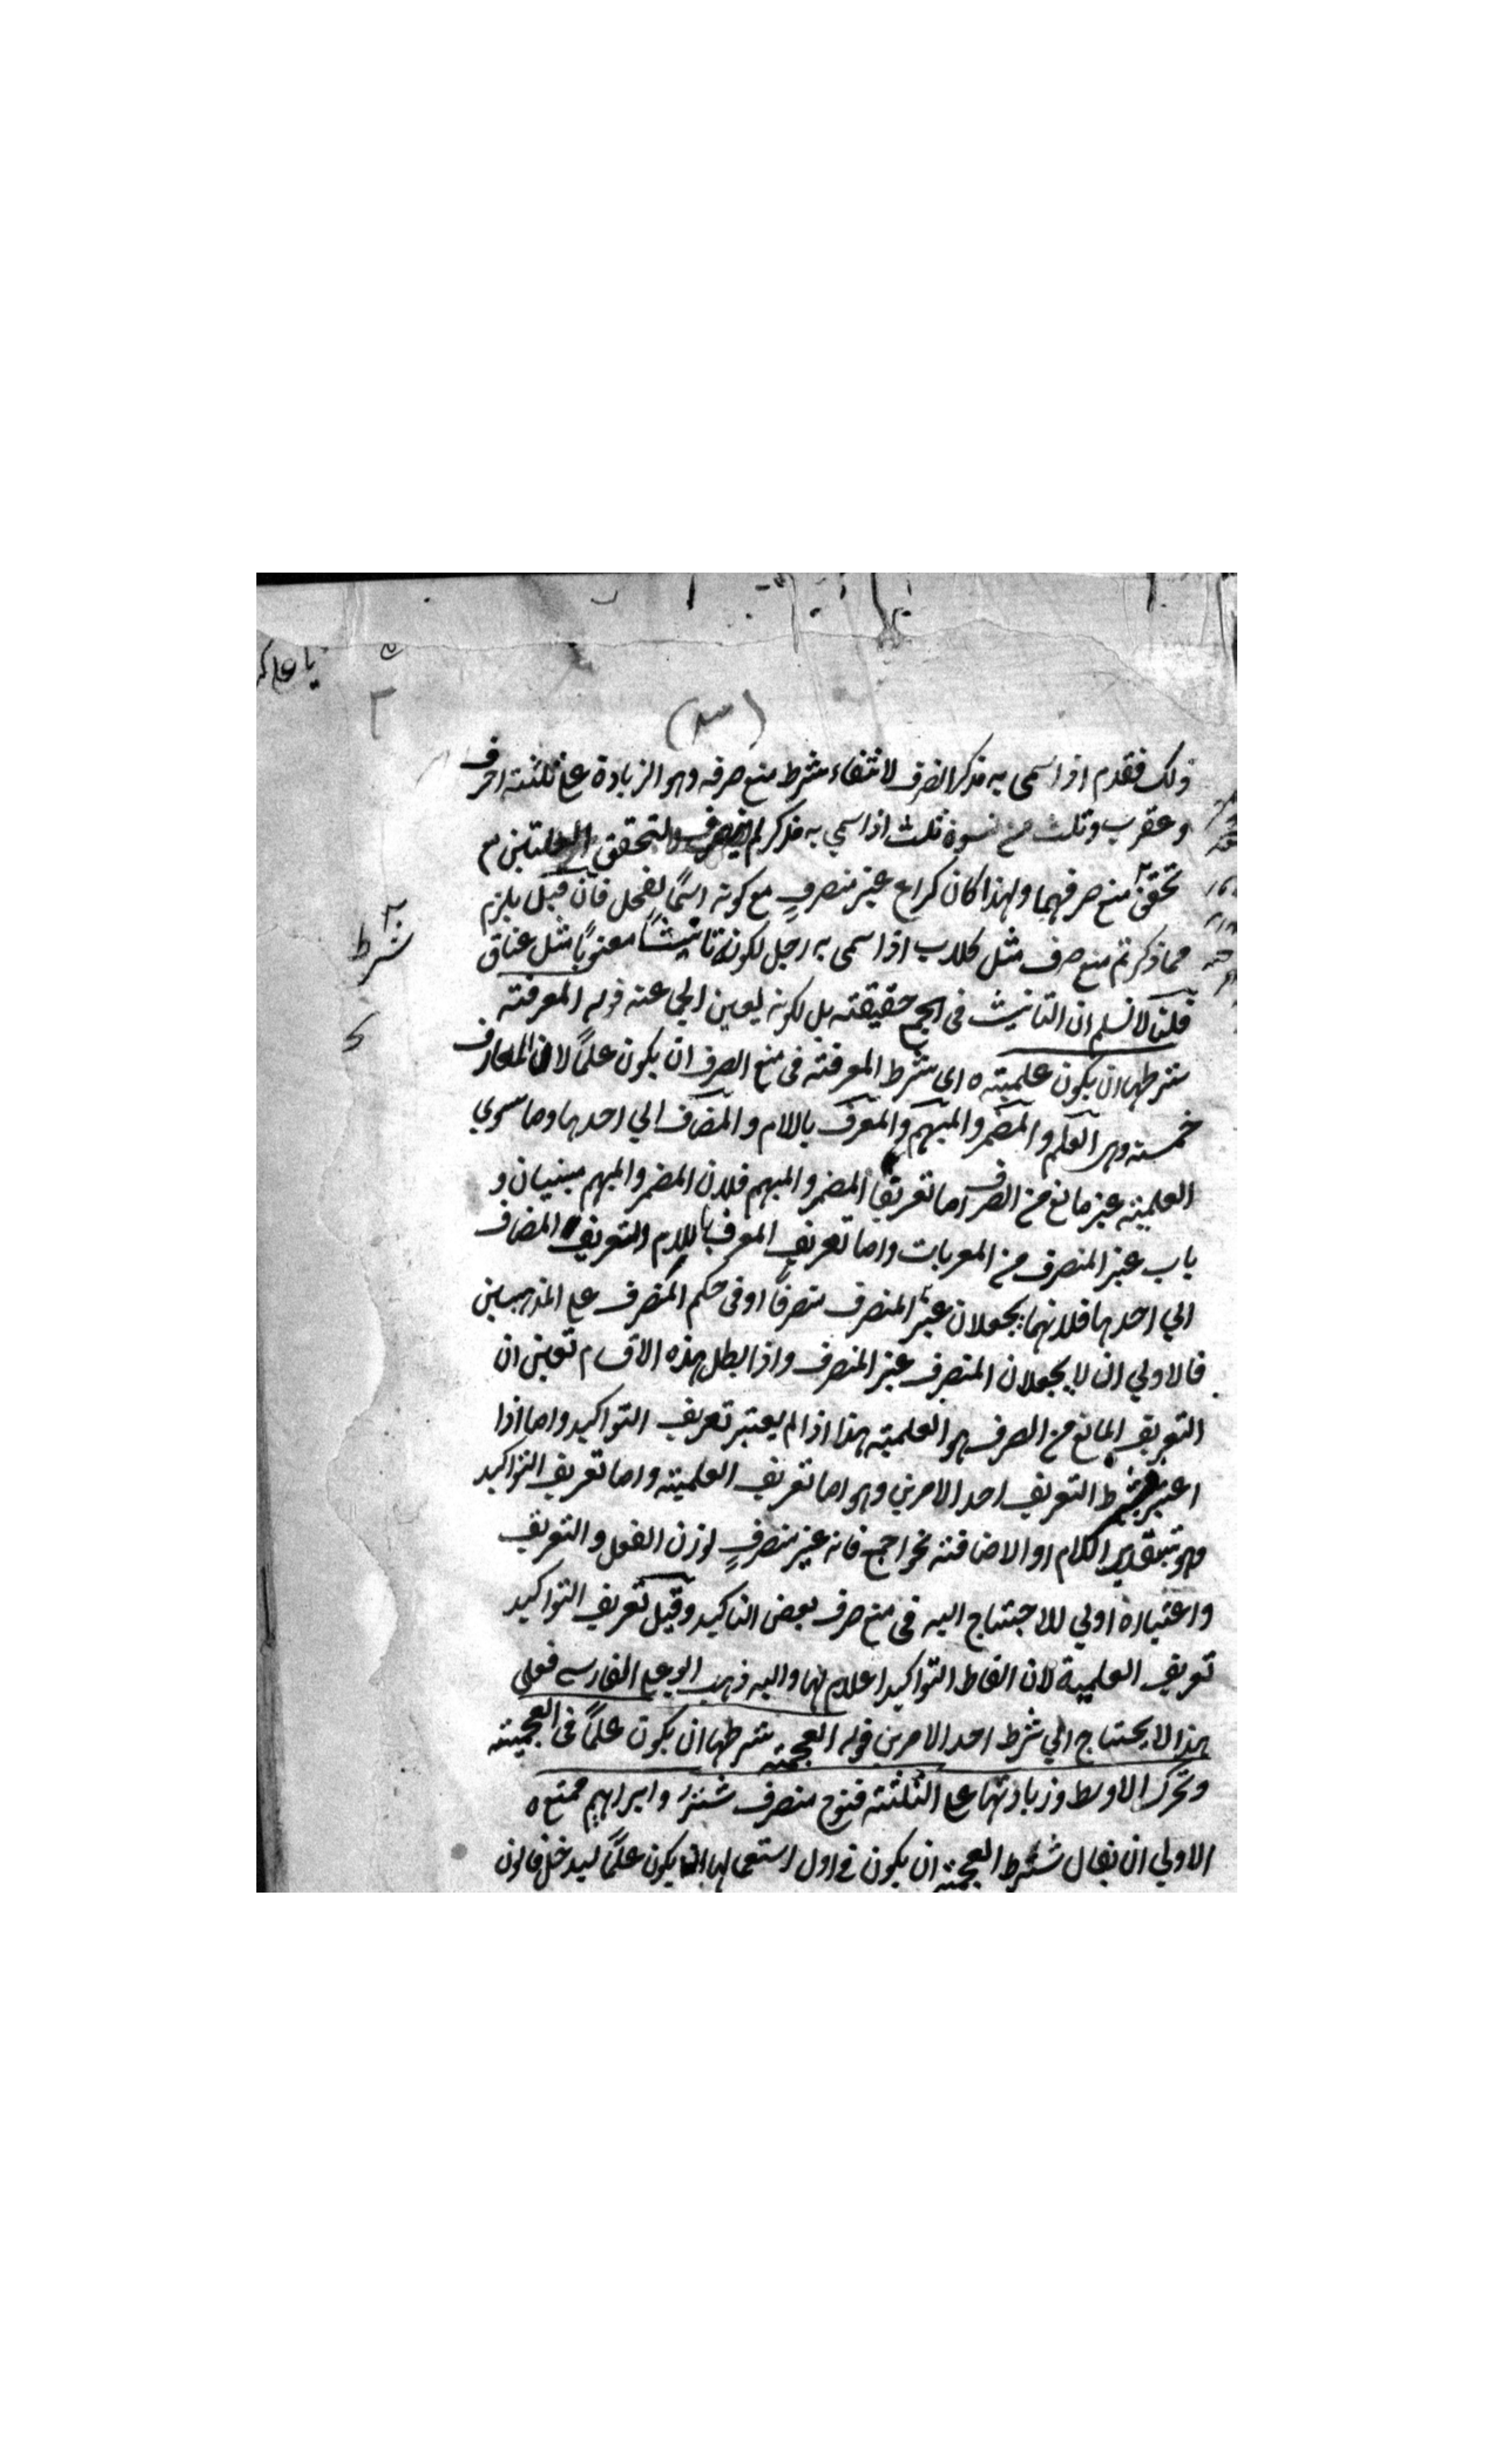 يا علي
شرط
ذلك فقدم اذا سمى به مذكر انصرف لانتفاء شرط منع صرفه وهو الزيادة على ثلثة احرف
وعقرب وثلث من نسوة ثلث اذا سمي به مذكر لم ينصرف لتحقق العلتين مع
تحقق منع صرفهما ولهذا كان كراع غير منصرفٍ مع كونه اسمًا لفحل فان قيل يلزم
مما ذكرتم منع صرف مثل كلاب اذا سمى به رجل لكونه تانيثًا معنويًا مثل عناق
قلنا لا نسلم ان التانيث في الجمع حقيقته بل لكونه قوله المعرفته
شرطها ان يكون علميته ه اى شرط المعرفته في منع الصرف ان يكون علمًا لان المعارف
خمسته وهى العلم والمضمر والمبهم والمعرف باللام والمضاف الي احدها وما سوي
العلميته غير مانع من الصرف اما تعريف المضمر والمبهم فلان المضمر والمبهم مبنيان و
باب غير المنصرف من المعربات واما تعريف المعرف باللام والتعريف المضاف
الي احدها فلانهما يجعلان غير المنصرف منصرفًا او في حكم المنصرف على المذهبين
فالاولي ان لا يجعلان المنصرف غير المنصرف واذا بطل هذه الاقسام تعين ان
التعريف المانع من الصرف هو العلميته هذا اذا لم يعتبر تعريف التواكيد واما اذا
اعتبر شرط التعريف احد الامرين وهو اما تعريف العلميته واما تعريف التواكيد
وهو بتقدير اللام او الاضافته نحو اجمع فانه غير منصرفٍ لوزن الفعل والتعريف
واعتباره اولي للاحتياج اليه في منع صرف بعض التاكيد وقيل تعريف التواكيد
تعريف العلمية لان الفاظ التواكيد اعلام لها واليه ذهب ابو على الفارسے فعلى
هذا لا يحتاج الي شرط احد الامرين قوله العجمته شرطها ان يكون علمًا فى العجميته
وتحرك الاوسط وزيادتها على الثلثته فنوح منصرف شتر وابراهيم ممتنع ه
الاولي ان يقال شرط العجمته ان يكون في اول استعمالها ان يكون علمًا ليدخل قالون